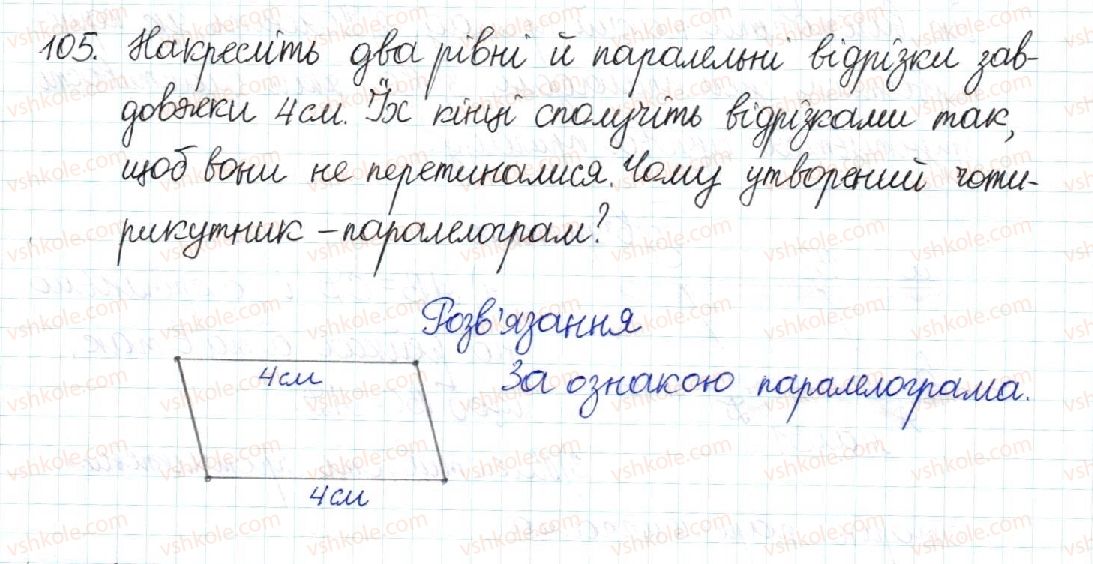 105. Накресліть два рівні й паралельні відрізки зав-
довжки 4 см. Їх кінці сполучіть відрізками так,
щоб вони не перетиналися. Чому утворений чоти-
рикутник – паралелограм?
Розв'язання
4 см
За ознакою паралелограма.
4 см
vshkole.com